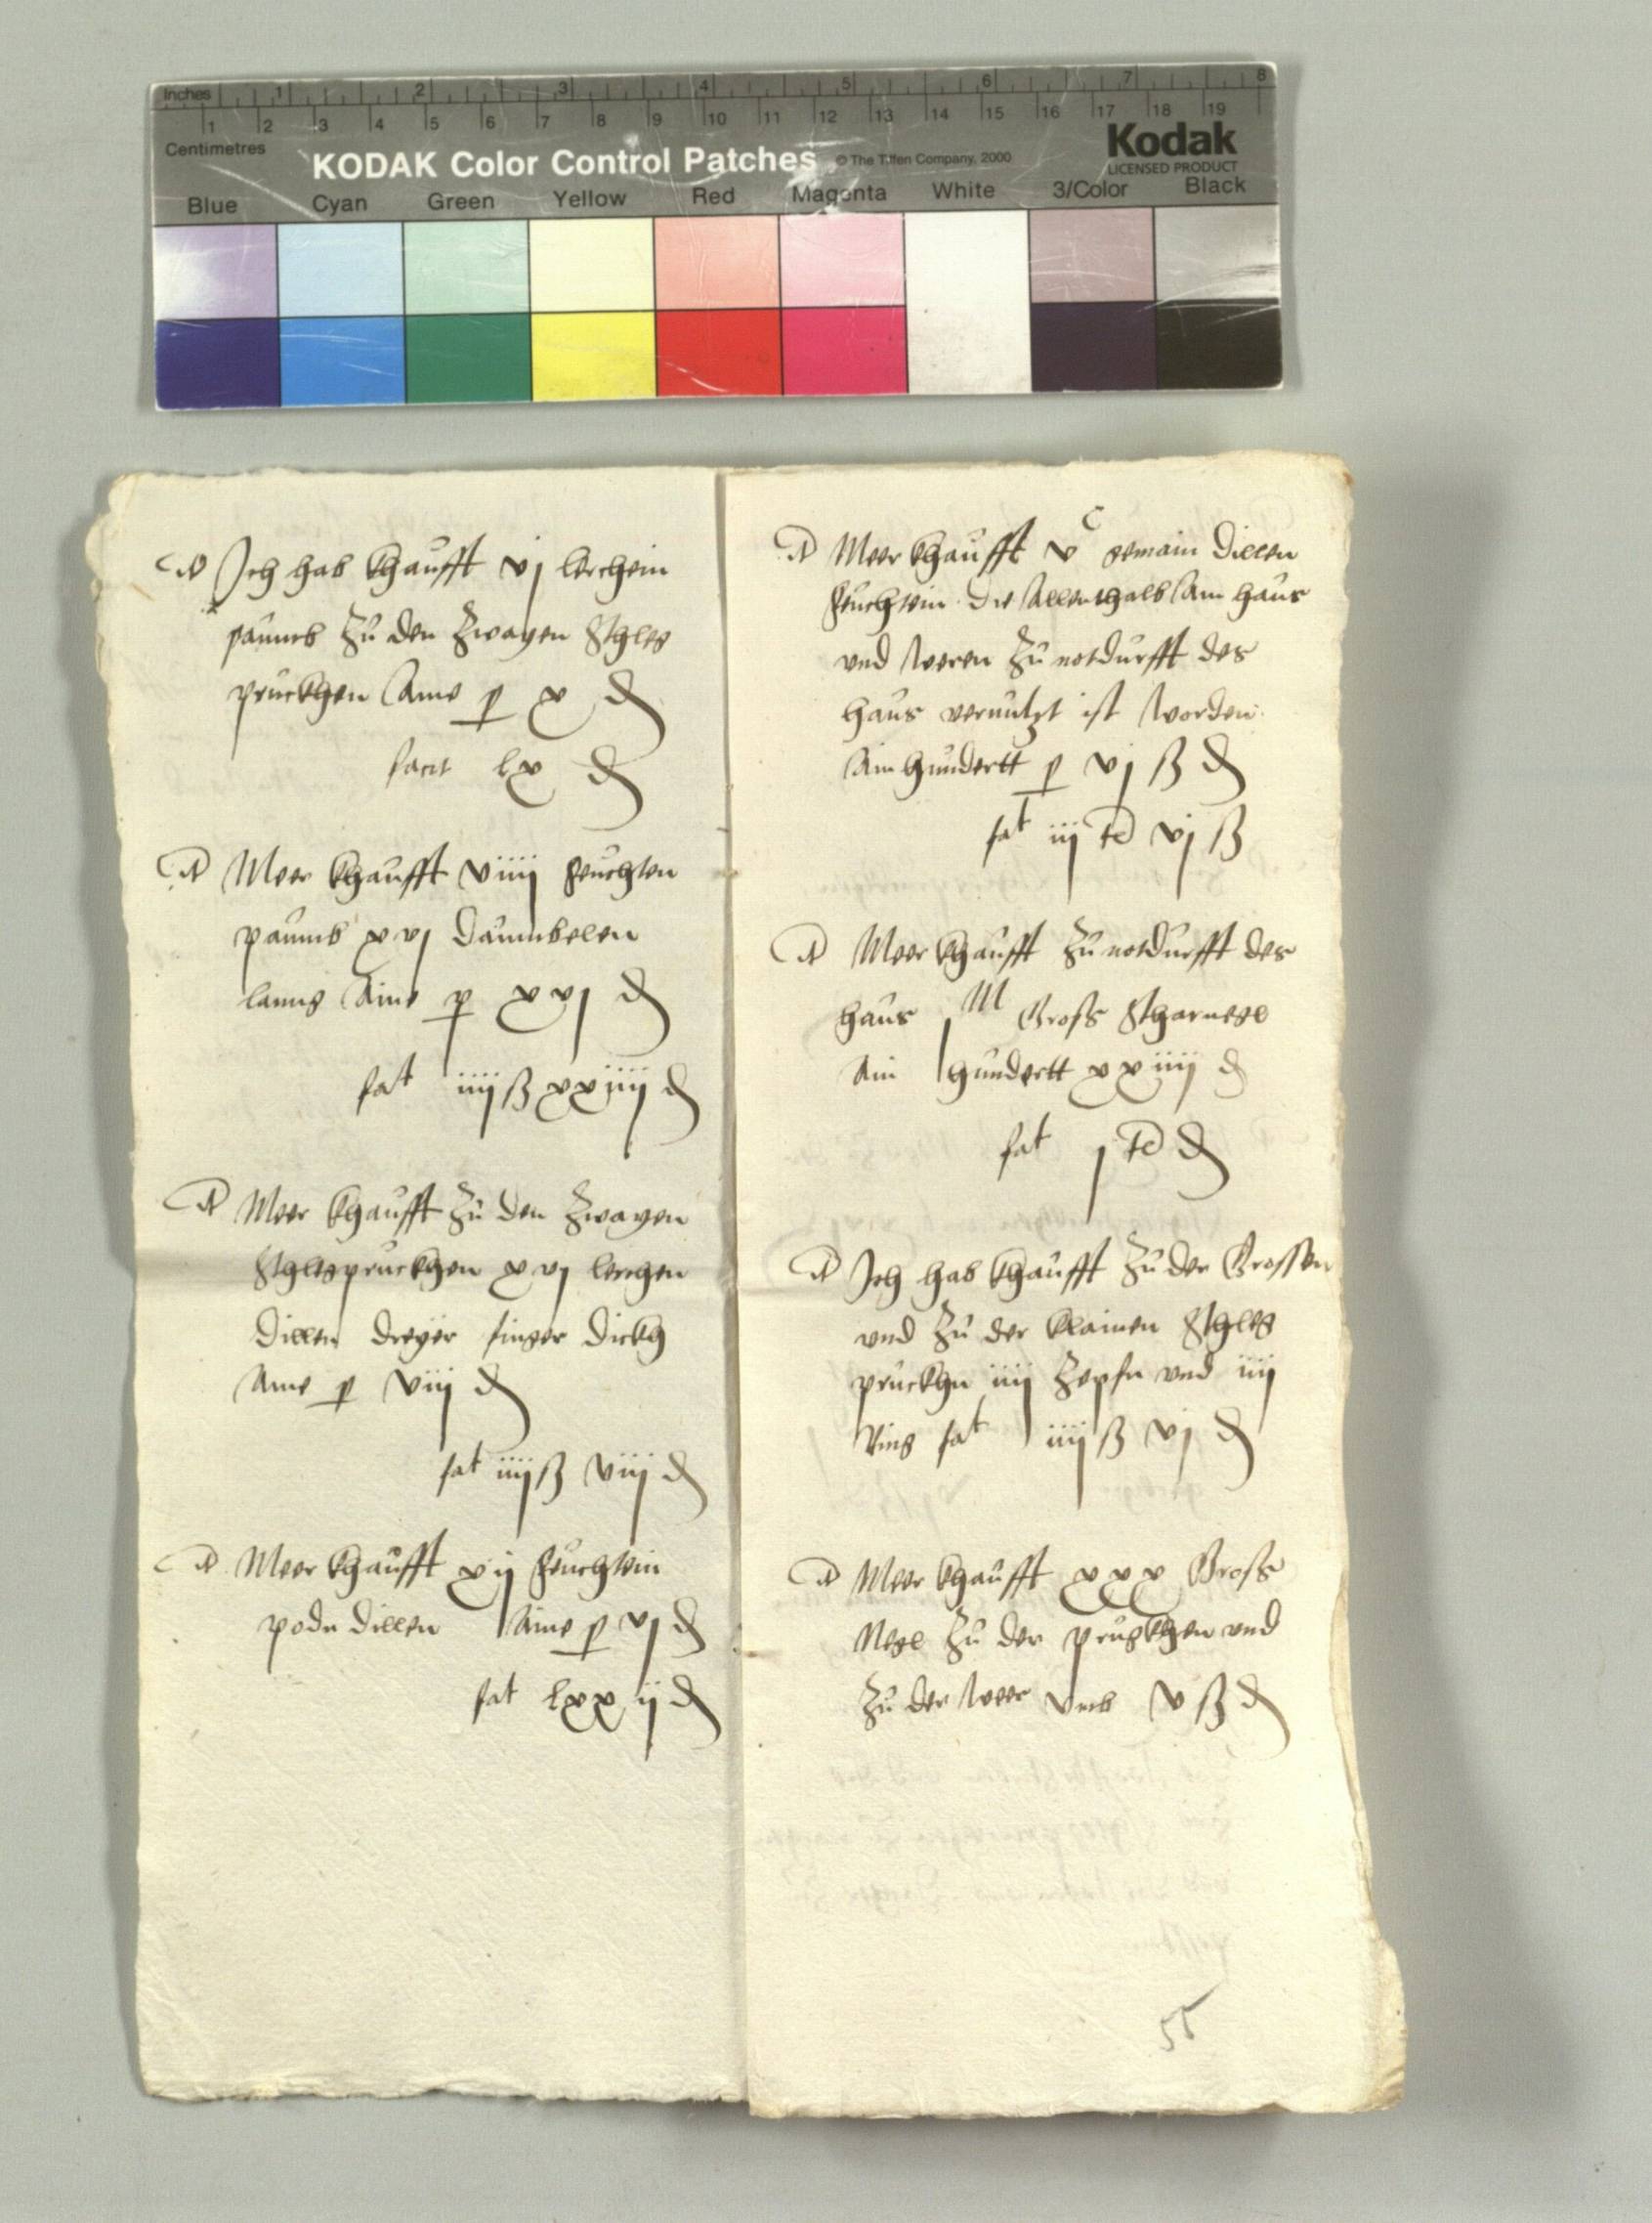 Inches 1 2 3 4 5 6 7 8
1 2 3 4 5 6 7 8 9 10 11 12 13 14 15 16 17 18 19
Centimetres
KODAK Color Control Patches © The Tiffen Company, 2000
Kodak
LICENSED PRODUCT
Blue Cyan Green Yellow Red Magenta White 3/Color Black
Jch hab khaufft vj lerchein
paumb zu den zwayen Schlag
pruckhen Ains p x d
facit lx d
Meer khaufft viiij feuchten
paumb xvj daumbelen
lanng Ains p xvj d
fat iiij ß xxiiij d
Meer khaufft zu den zwayen
Schlagpruckhen xvj lerchen
dillen dreyer finger dickh
Aine p viij d
fat iiij ß viij d
Meer khaufft xij feuchtein
podn dillen Aine p vj d
fat lxxij d
Meer khaufft v C gemain dillen
feuchtein die Allenthalb Am haus
vnd weren zu notdurfft des
haus vernutzt ist worden
Ain hundertt p vj ß d
fat iij lb vj ß
Meer khaufft zu notdurfft des
haus j M Gross Scharnegl
Ain hundertt xxiiij d
fat j lb d
Jch hab khaufft zu der Grossen
vnd zu der klainen Schlag
pruckhn iiij zepfn vnd iiij
Ring fat iiij ß vj d
Meer khaufft xxx Gross
Negl zu der prugkhen vnd
zu der weer vmb v ß d
55